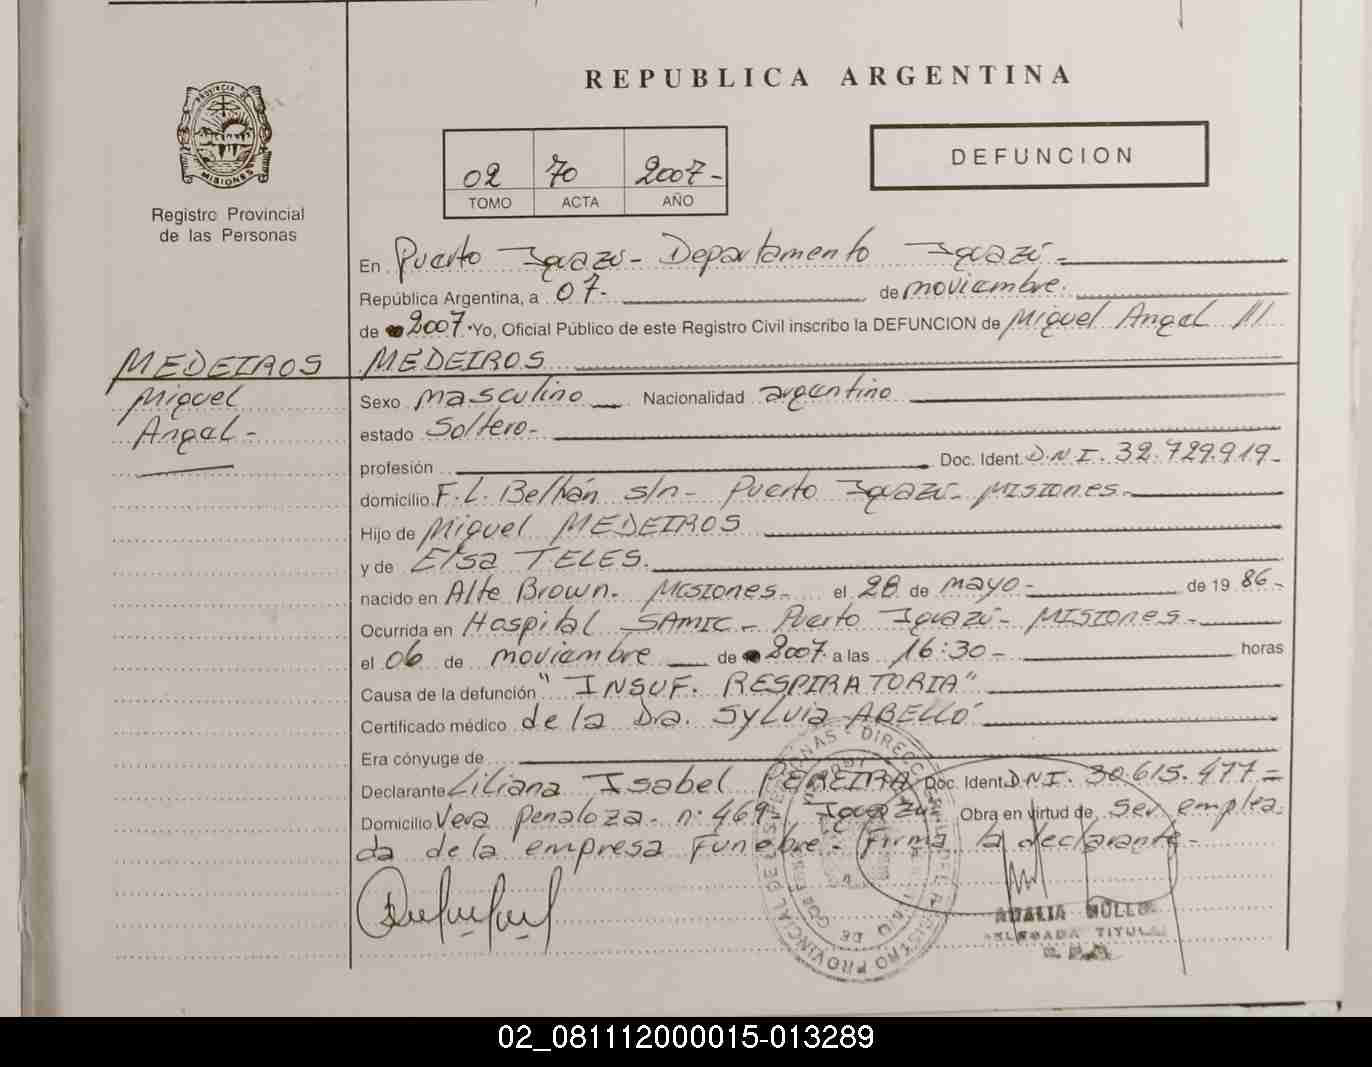 REPUBLICA ARGENTINA
DEFUNCION
02 70 2007-
TOMO ACTA AÑO
PROVINCIA DE MISIONES
Registro Provincial
de las Personas
En Puerto Iguazú- Departamento Iguazú-
República Argentina, a 07- de noviembre.
de 2007. Yo, Oficial Público de este Registro Civil inscribo la DEFUNCION de Miguel Angel ///
MEDEIROS
MEDEIROS
Miguel
Angel-
Sexo masculino Nacionalidad argentino
estado Soltero-
profesión Doc. Ident. D.N.I. 32.729.919-
domicilio F.L. Beltrán s/n- Puerto Iguazú- MISIONES-
Hijo de Miguel MEDEIROS
y de Elsa TELES.
nacido en Alte Brown. MISIONES- el 28 de mayo- de 19 86-
Ocurrida en Hospital SAMIC- Puerto Iguazú- MISIONES-
el 06 de noviembre de 2007. a las 16:30- horas
Causa de la defunción "INSUF. RESPIRATORIA"
Certificado médico de la Dra. SYLVIA ABELLÓ
Era cónyuge de
Declarante Liliana Isabel PEREIRA Doc. Ident. D.N.I. 30.615.477=
Domicilio Vera Penaloza- n: 469- Iguazú Obra en virtud de ser emplea
da de la empresa Funebre- Firma la declarante-
TITULAR
02_081112000015-013289